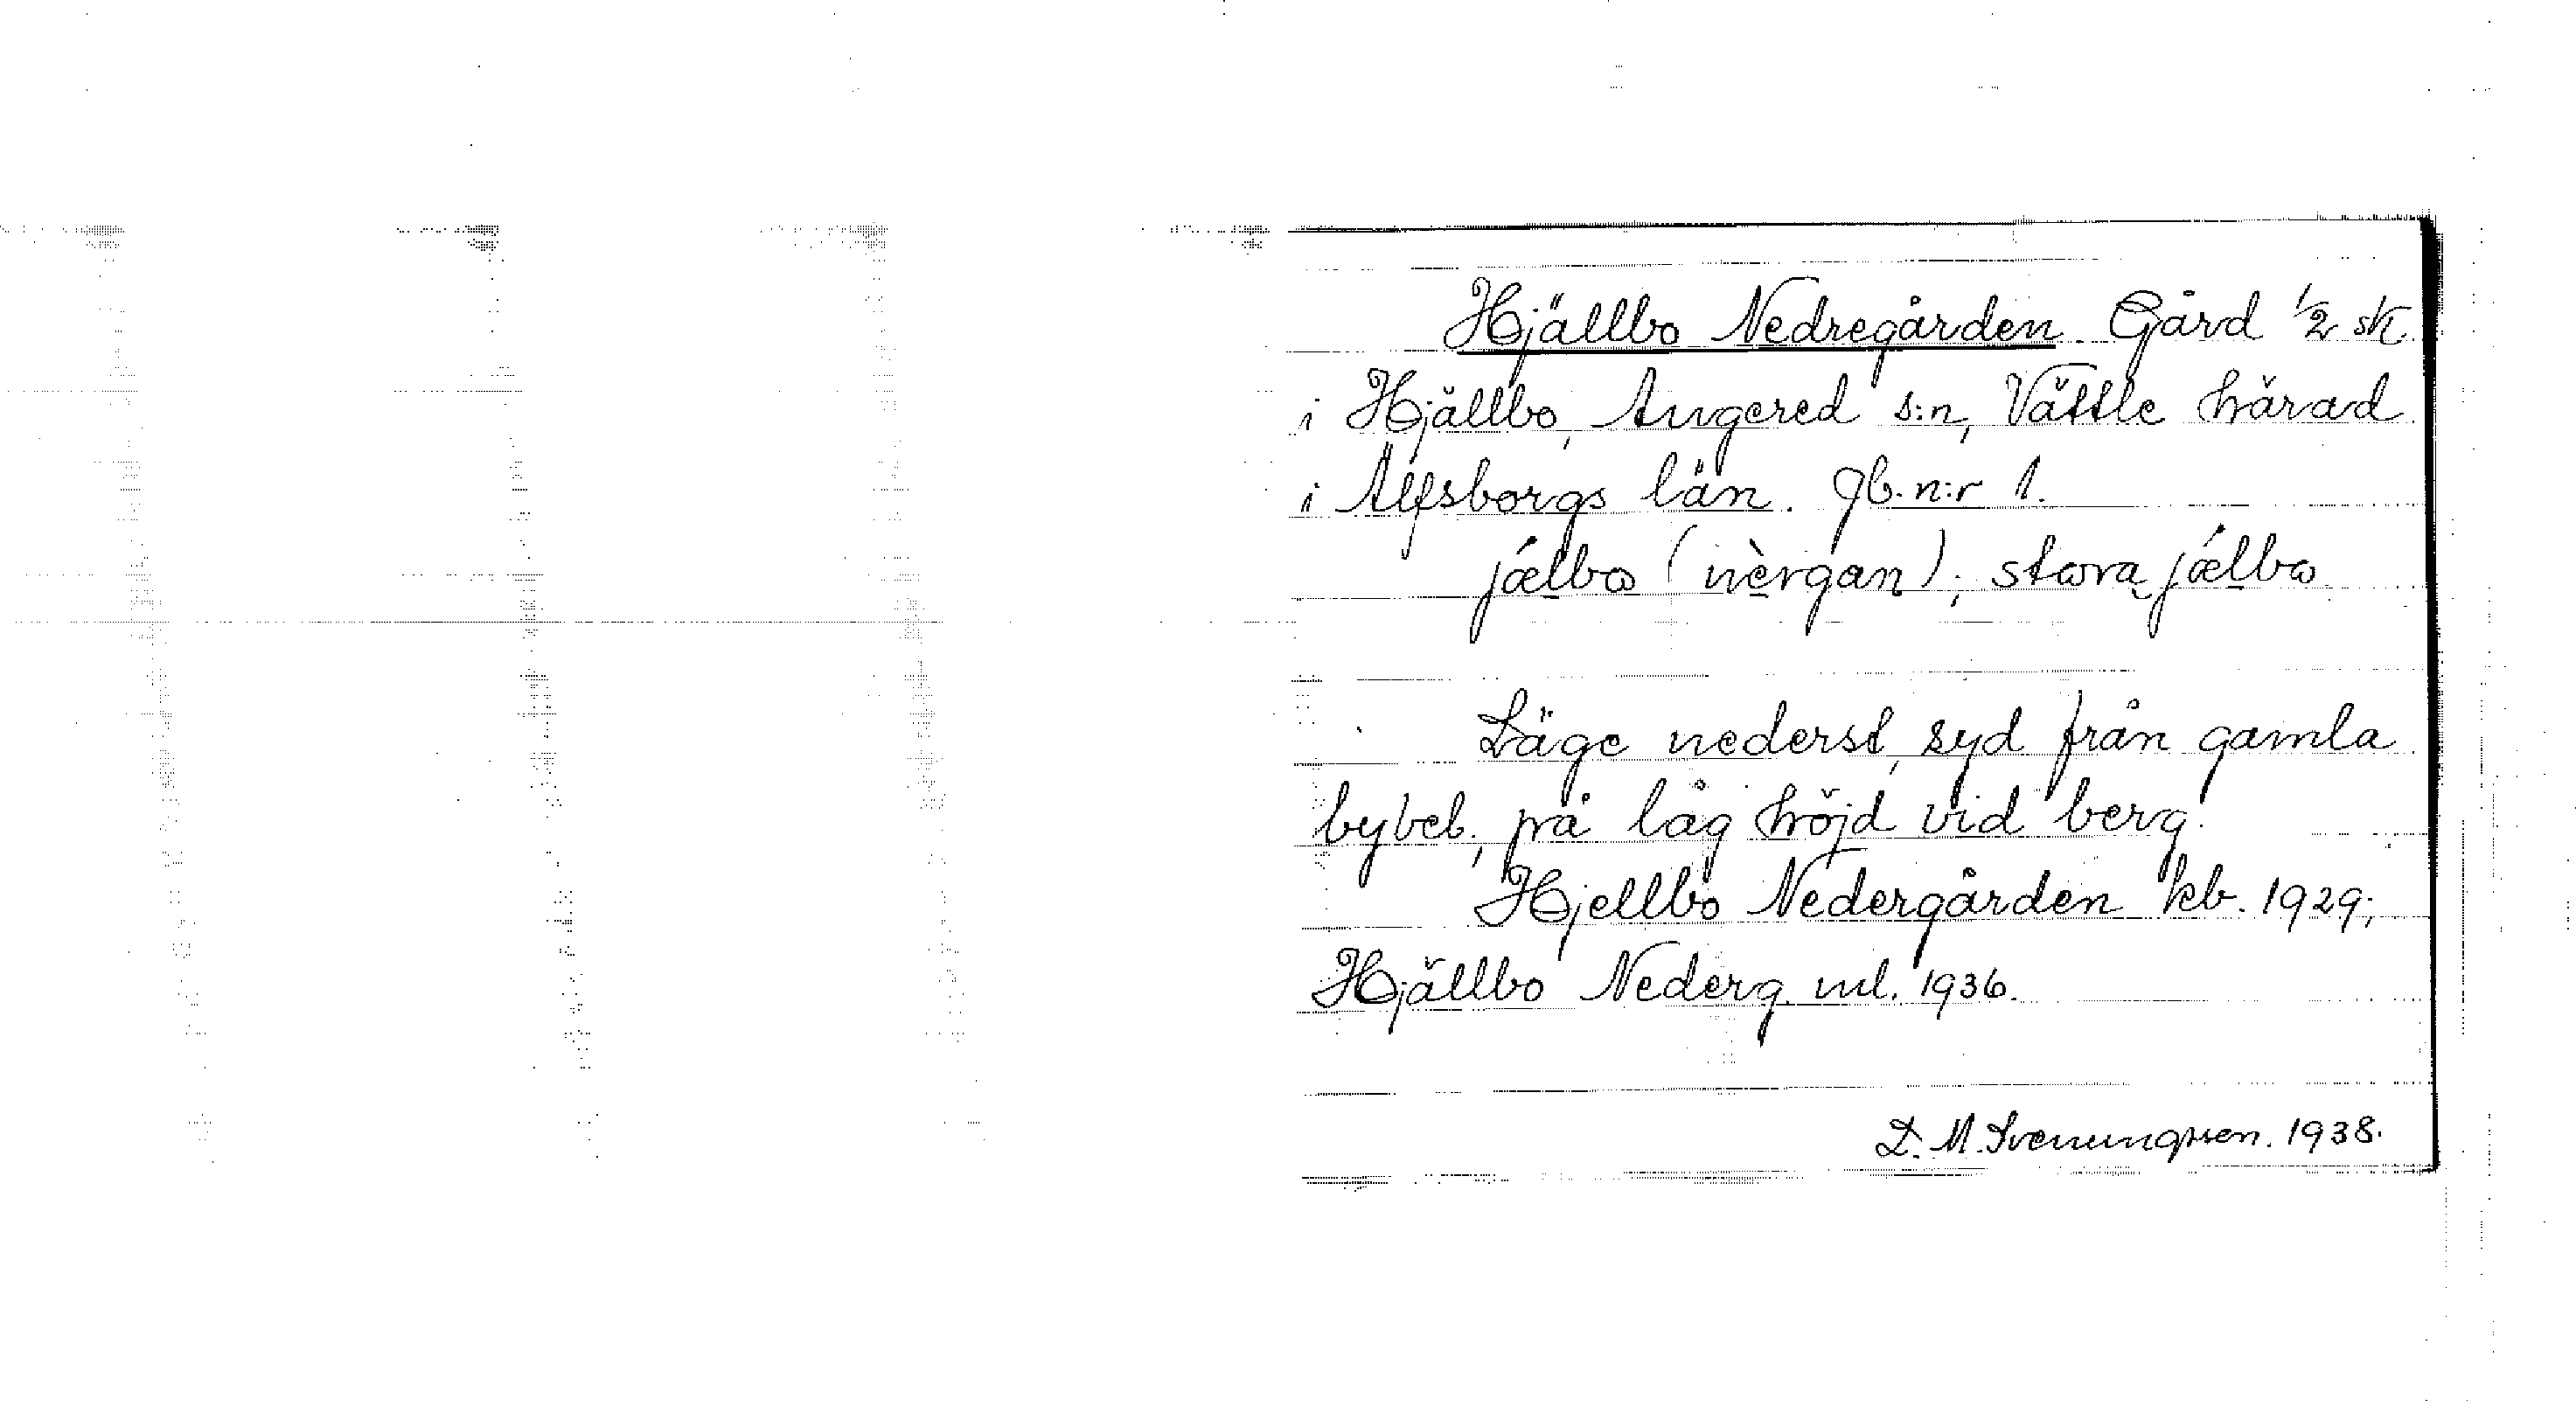 Hjällbo Nedregården. Gård 1/2 sk.
i Hjällbo, Angered s:n, Vättle härad
i Älfsborgs län. Jb. n:r 1.
jǽlbɷ (nèrgan); stɷra jǽlbɷ
Läge nederst, syd från gamla
bybeb., på låg höjd vid berg.
Hjellbo Nedergården kb. 1929;
Hjällbo Nederg. ml. 1936.
D. M. Svenungsson. 1938.